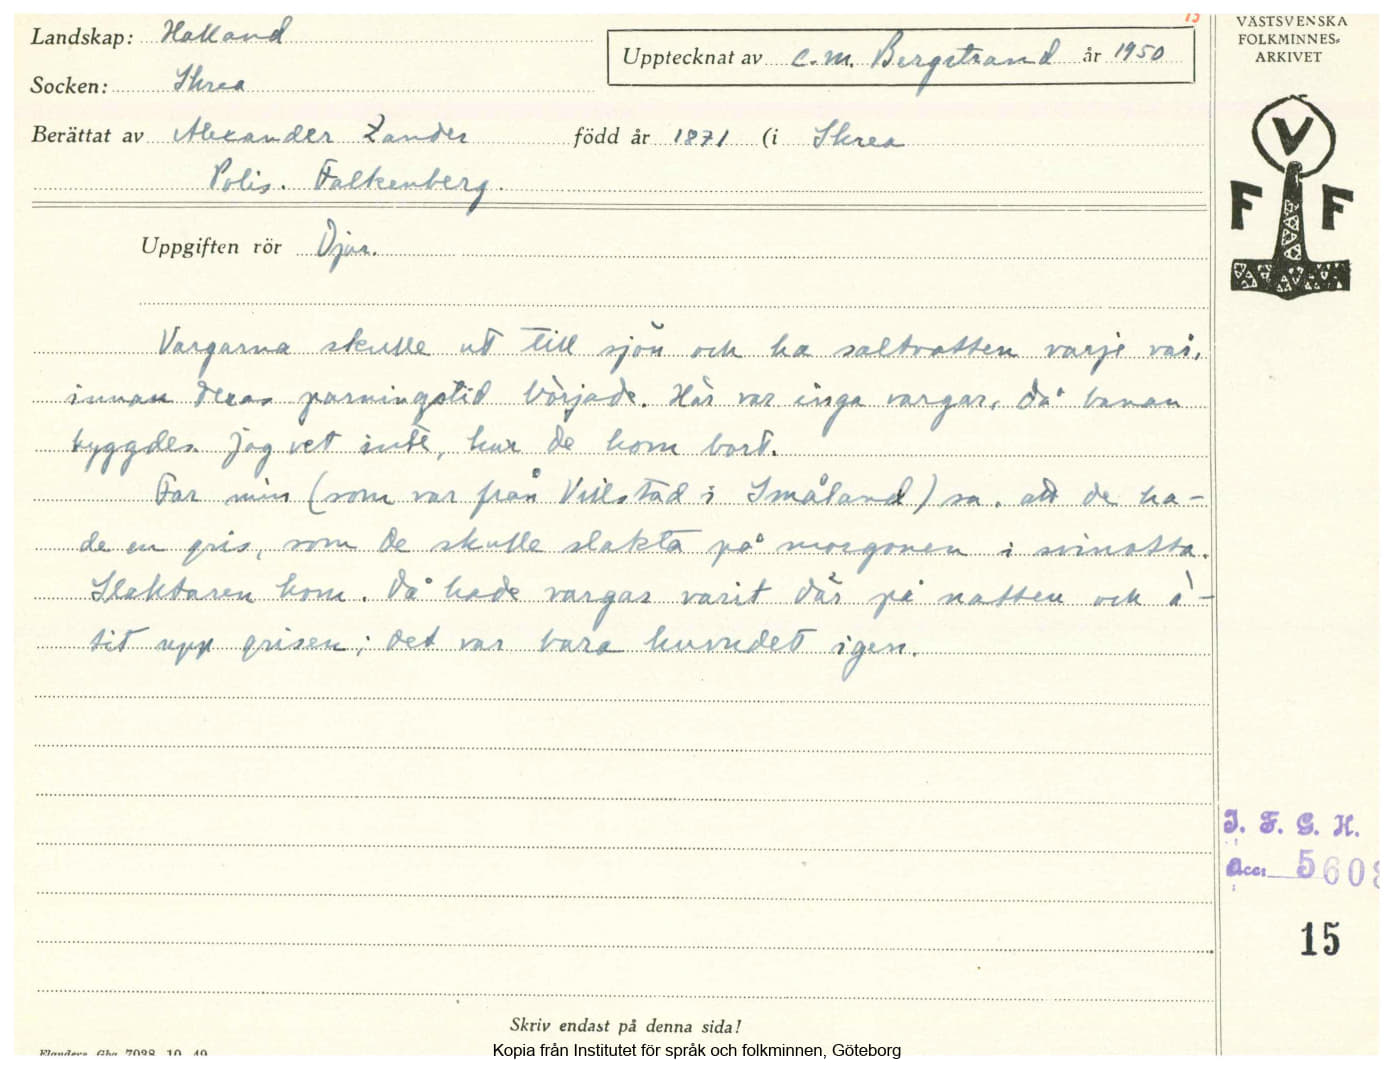 15
Landskap: Halland
Upptecknat av C. M. Bergstrand år 1950
Socken: Skrea
Berättat av Alexander Zander född år 1871 (i Skrea
Polis. Falkenberg.
Uppgiften rör Djur.
Vargarna skulle ut till sjön och ha saltvatten varje vår,
innan deras parningstid började. Här var inga vargar, då banan
byggdes. Jag vet inte, hur de kom bort.
Far min (som var från Villstad i Småland) sa, att de ha-
de en gris, som de skulle slakta på morgonen i svinotta.
Slaktaren kom. Då hade vargar varit där på natten och ä-
tit upp grisen; det var bara huvudet igen.
Skriv endast på denna sida!
Flanders Gbg 7038 10 49
VÄSTSVENSKA
FOLKMINNES-
ARKIVET
V
F F
I. F. G. H.
Acc: 5608
15
Kopia från Institutet för språk och folkminnen, Göteborg